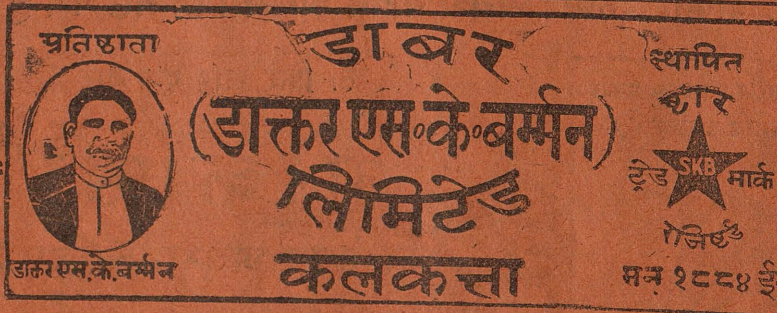 प्रतिष्ठाता
डाक्तर एस.के.बर्म्मन
डाबर
(डाक्तर एस॰के॰बर्म्मन)
लिमिटेड
कलकत्ता
स्थापित
ष्टार
SKB
ट्रेड मार्क
रेजिष्टर्ड
सन् १८८४ ई